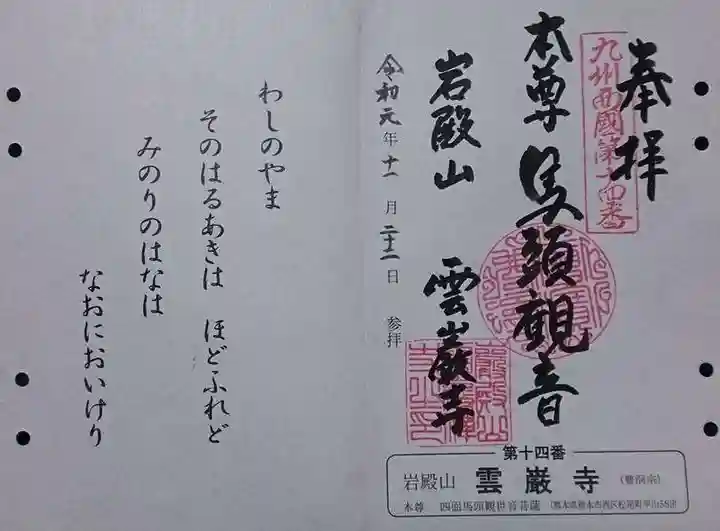 奉拝
九州西國第十四番
本尊馬頭觀音
岩殿山 雲巌寺
令和元年十一月二十二日 参拝
わしのやま
そのはるあきは ほどふれど
みのりのはなは
なおにおいけり
第十四番
岩殿山 雲巌寺 (曹洞宗)
本尊 四面馬頭観世音菩薩